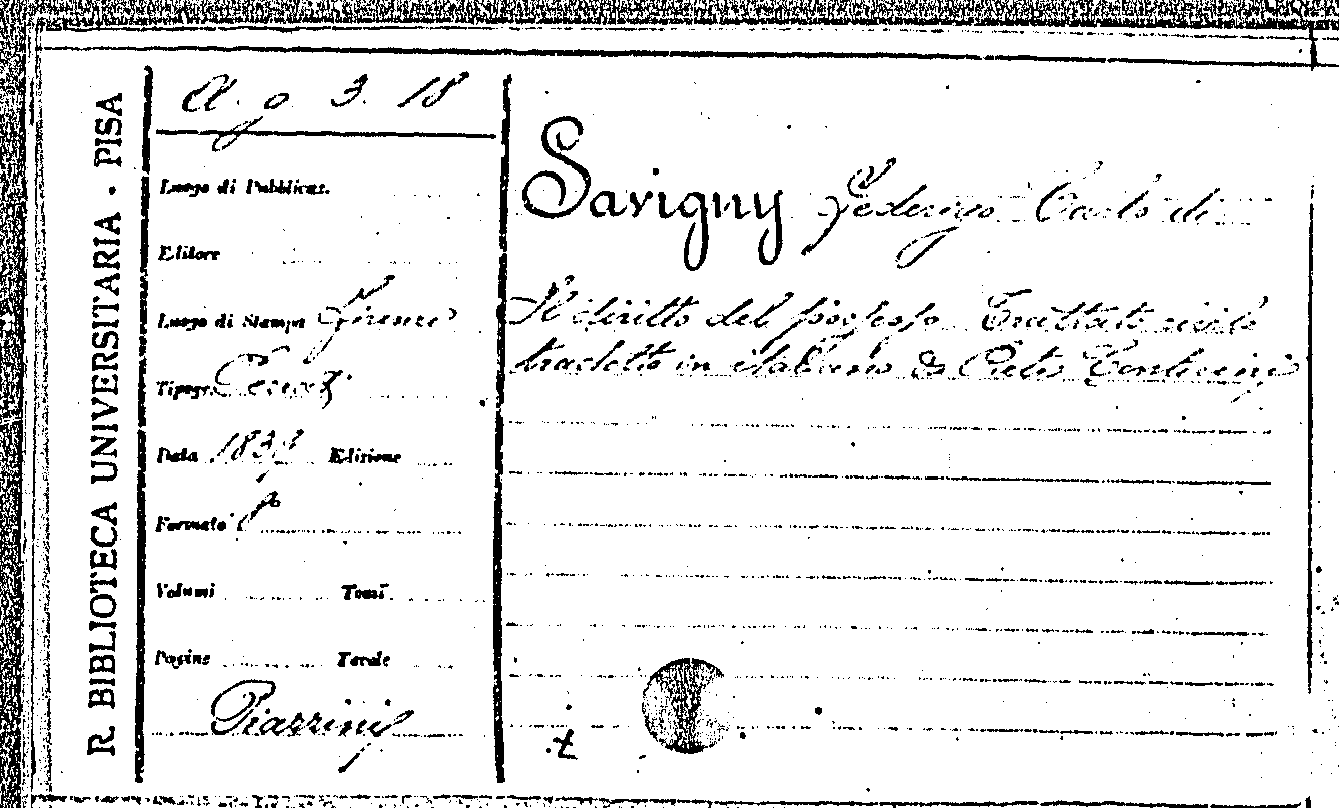 R. BIBLIOTECA UNIVERSITARIA - PISA
A. g. 3. 18
Luogo di Pubblicaz.
Editore
Luogo di Stampa Firenze
Tipogr.
Data 1839 Edizione
Formato 8°
Volumi Tomi
Pagine Tavole
Piazzini
Savigny Federigo Carlo di
Il diritto del possesso. Trattato civile
tradotto in italiano da Pietro Conticini